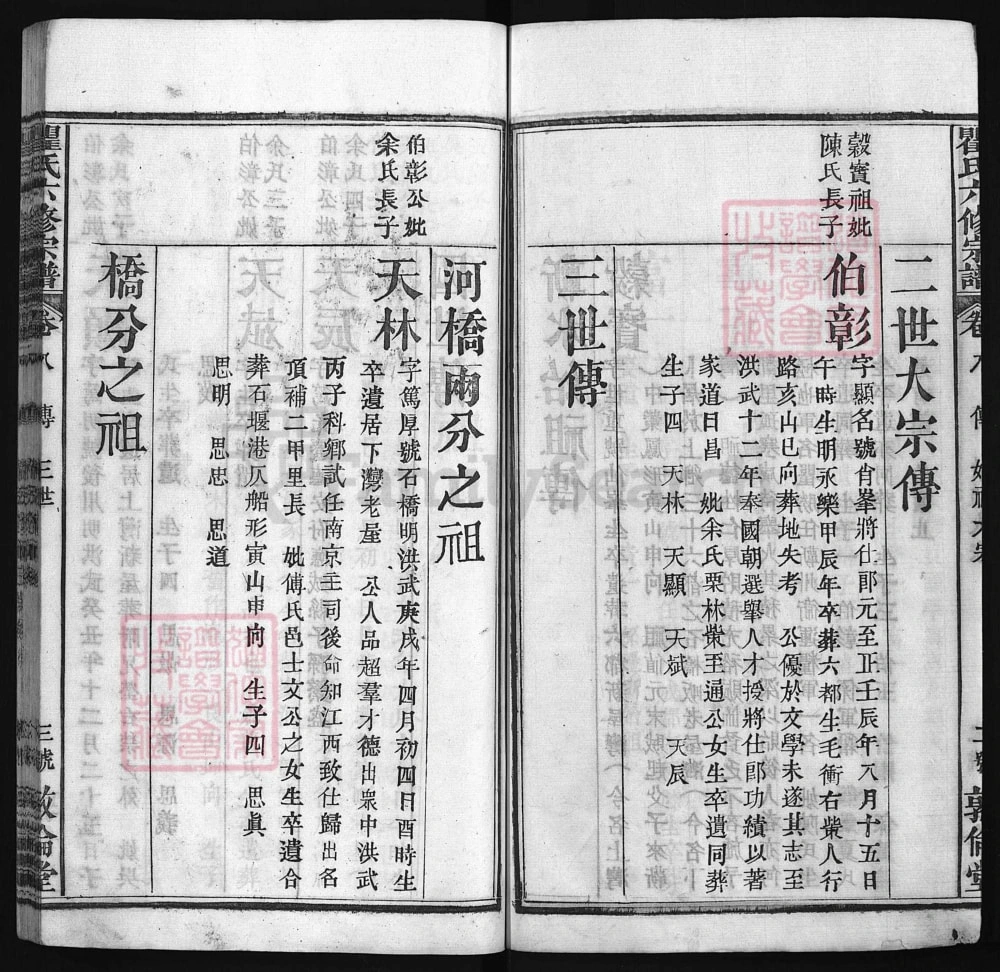 二世大宗傳
穀寶祖妣
陳氏長子
伯彰
字顯名號肖峯將仕郎元至正壬辰年八月十五日
午時生明永樂甲辰年卒葬六都生毛衝右柴人行
路亥山巳向葬地失考 公優於文學未遂其志至
洪武十二年奉國朝選舉人才授將仕郎功績以著
家道日昌 妣余氏栗林柴至通公女生卒遺同葬
生子四 天林 天顯 天斌 天辰
三世傳
河橋兩分之祖
伯彰公妣
余氏長子
天林
字篤厚號石橋明洪武庚戌年四月初四日酉時生
卒遺居下灣老屋 公人品超羣才德出衆中洪武
丙子科鄉試任南京主司後命知江西致仕歸出名
頂補二甲里長 妣傅氏邑士文公之女生卒遺合
葬石堰港仄船形寅山申向 生子四 思眞
思明 思忠 思道
橋分之祖
瞿氏六修宗譜 卷八 傳 三世 三號 敦倫堂